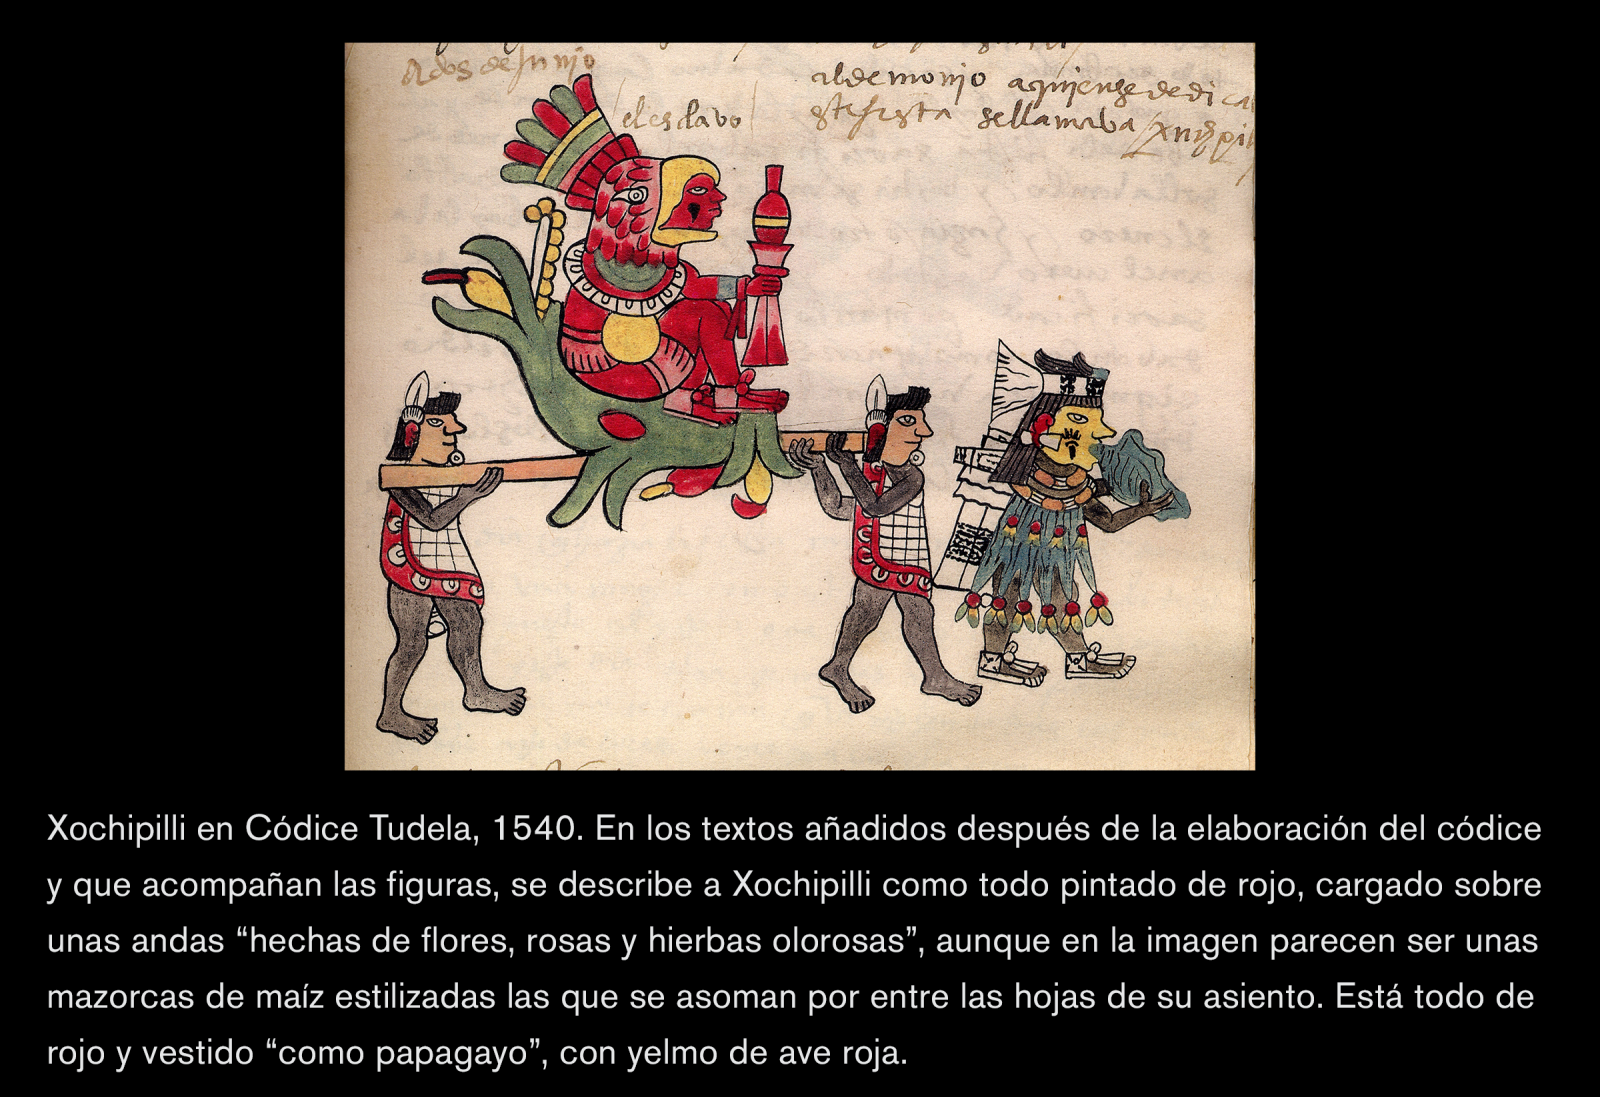 A dos de Junjo
el esclavo
al demonjo a qujen se dedica
esta fiesta se llamava
Xochipilli en Códice Tudela, 1540. En los textos añadidos después de la elaboración del códice
y que acompañan las figuras, se describe a Xochipilli como todo pintado de rojo, cargado sobre
unas andas “hechas de flores, rosas y hierbas olorosas”, aunque en la imagen parecen ser unas
mazorcas de maíz estilizadas las que se asoman por entre las hojas de su asiento. Está todo de
rojo y vestido “como papagayo”, con yelmo de ave roja.